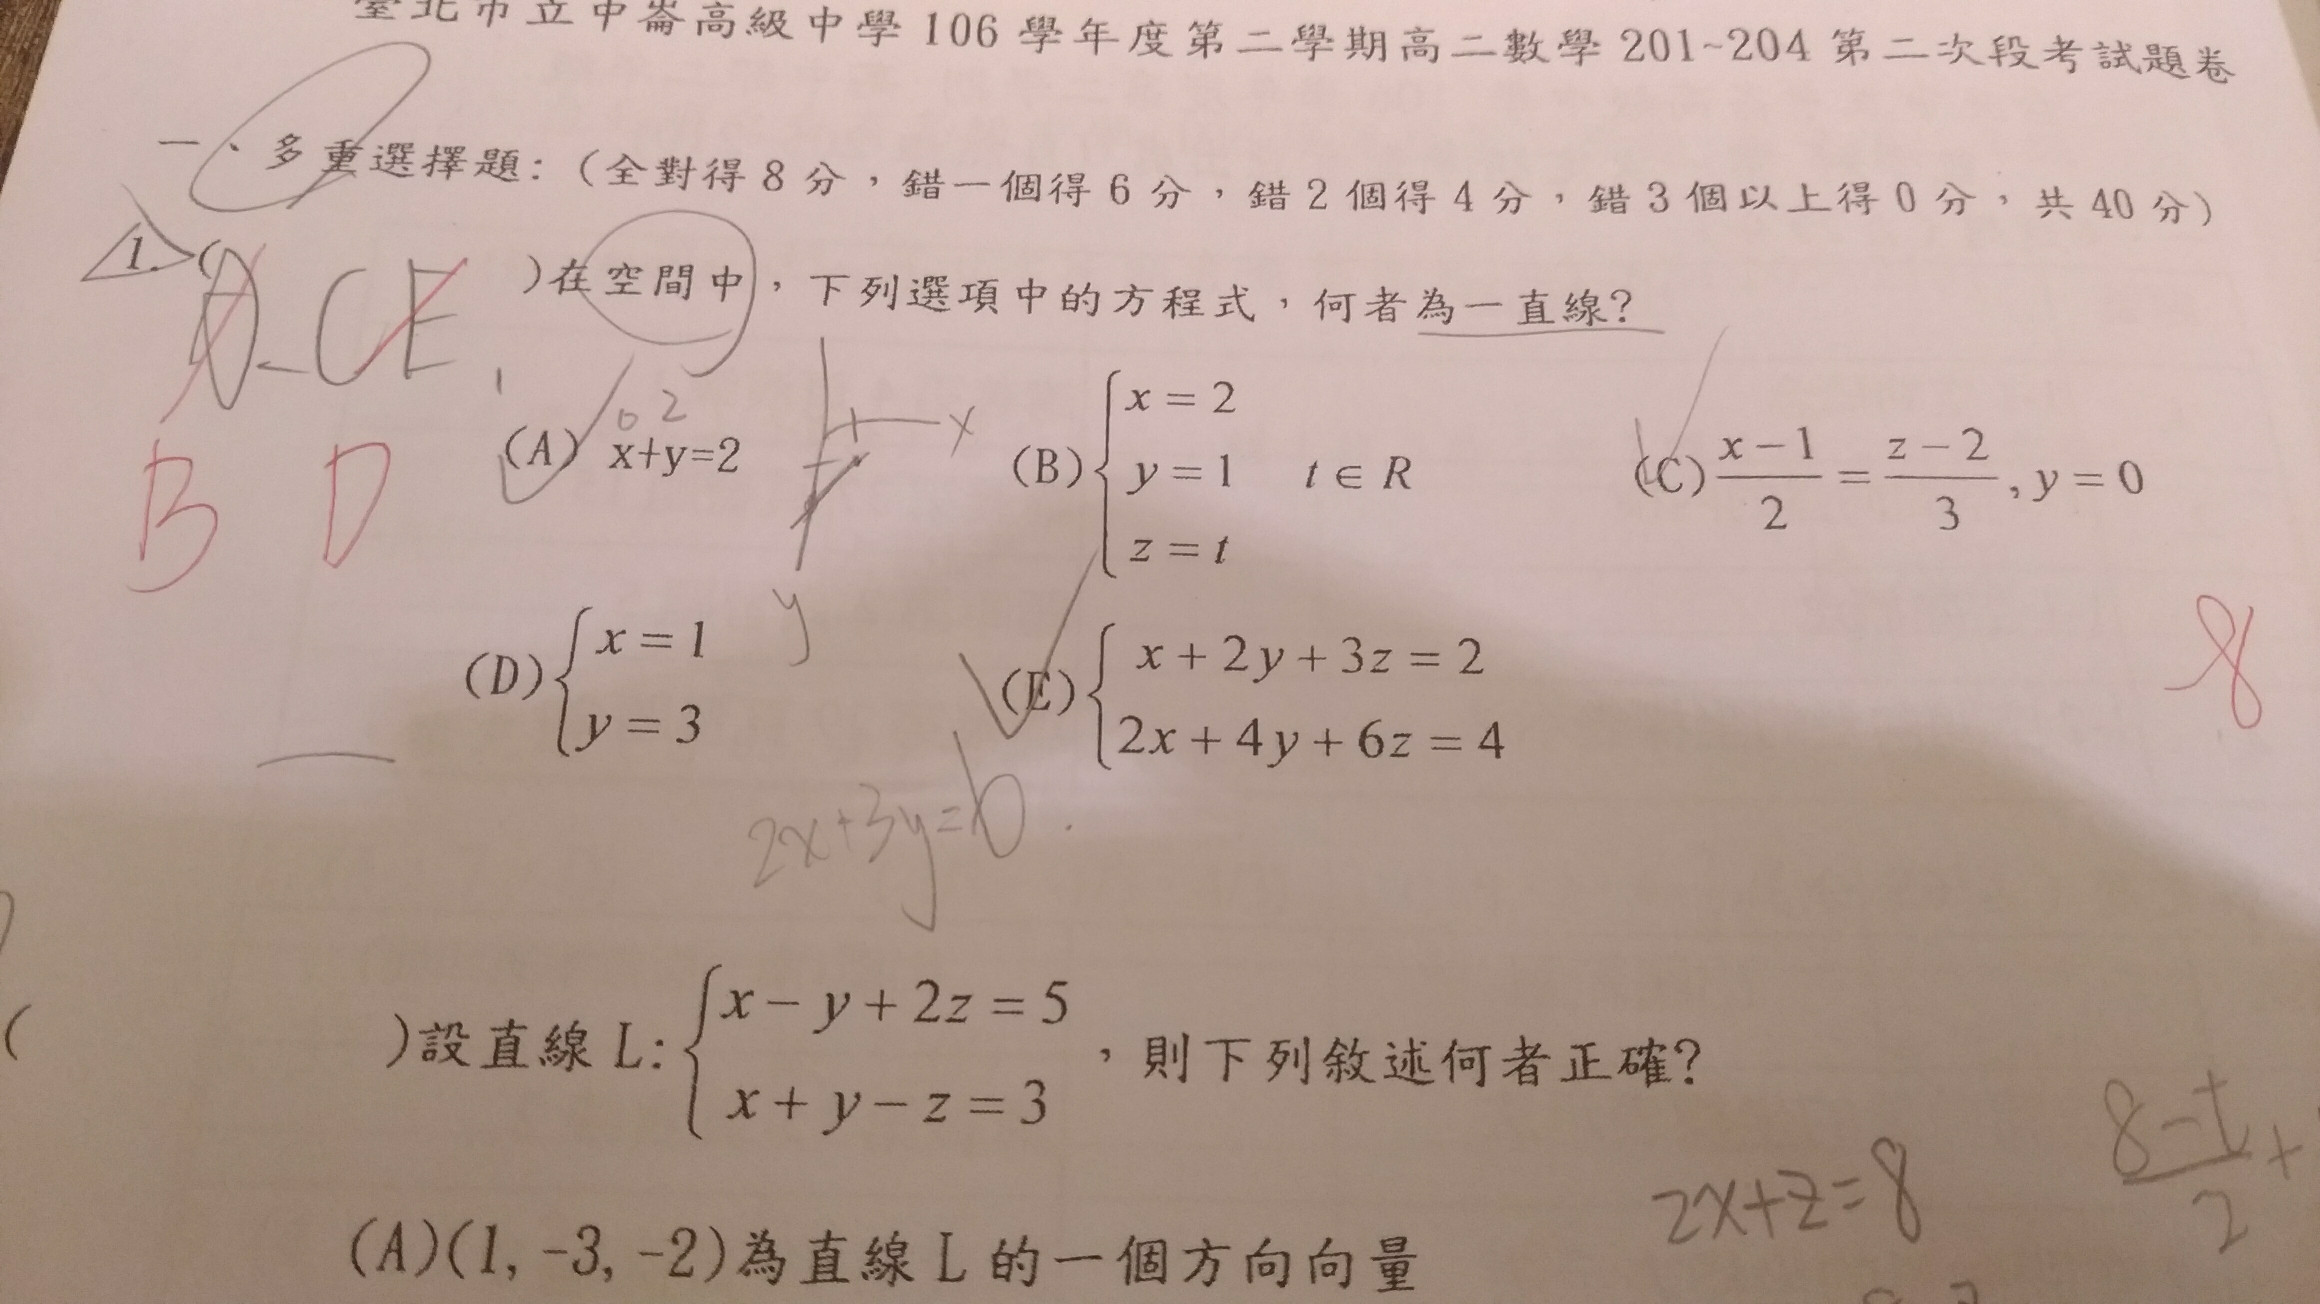 臺北市立中崙高級中學 106 學年度第二學期高二數學 201~204 第二次段考試題卷
一、多重選擇題:（全對得 8 分，錯一個得 6 分，錯 2 個得 4 分，錯 3 個以上得 0 分，共 40 分）
1. ( CE )在空間中，下列選項中的方程式，何者為一直線?
B D
0 2
(A) x+y=2
x
y
(B) { x = 2
y = 1 t ∈ R
z = t
(C) \frac{x-1}{2} = \frac{z-2}{3}, y = 0
(D) { x = 1
y = 3
(E) { x + 2y + 3z = 2
2x + 4y + 6z = 4
8
2x+3y=6
( )設直線 L: { x - y + 2z = 5
x + y - z = 3 ，則下列敘述何者正確?
2x+z=8
\frac{8-t}{2}+
(A)(1, -3, -2)為直線 L 的一個方向向量